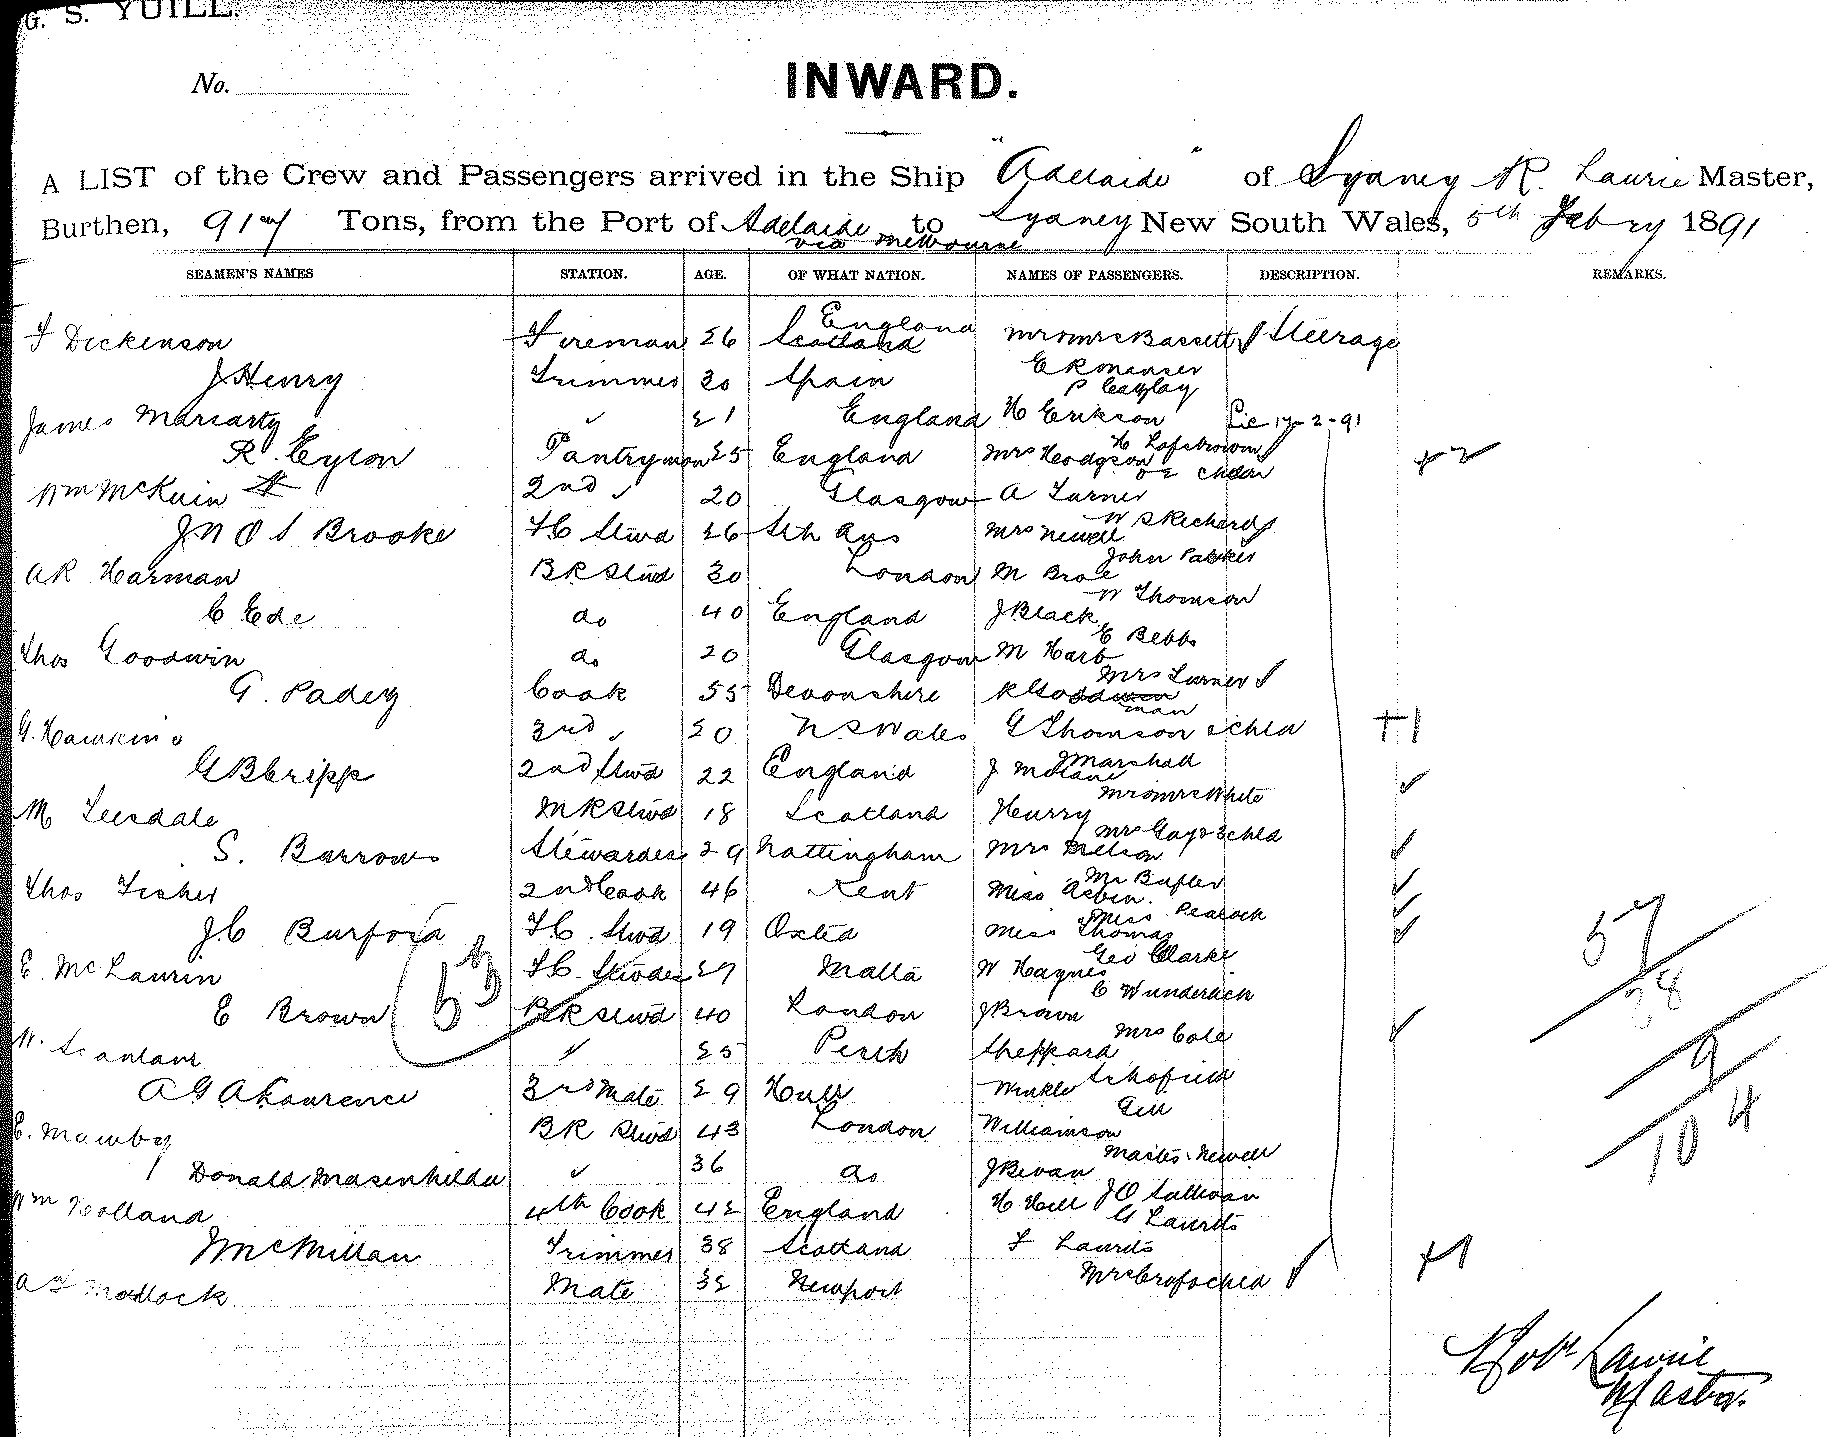 G. S. YUILL.
No.
INWARD.
A LIST of the Crew and Passengers arrived in the Ship "Adelaide" of Sydney R. Laurie Master,
Burthen, 917 Tons, from the Port of Adelaide to Sydney New South Wales, 5th Febry 1891
via Melbourne
SEAMEN'S NAMES STATION. AGE. OF WHAT NATION. NAMES OF PASSENGERS. DESCRIPTION. REMARKS.
England
Dickenson Fireman 26 Scotland Mr & Mrs Bassett Steerage
J Henry Trimmer 30 Spain E R Manser
P Cayley
James Moriarty " 21 England H Erikson 17-2-91
H Lofstrown
R. Eyton Pantryman 25 England Mrs Hodgson +2
or 2 chldn
Wm McKuin 2nd " 20 Glasgow A Turner
W S Richards
JNO S Brooke FC Stwd 26 Sth Aus Mrs Newell
John Parker
AR Harman BR Stwd 30 London M
W Thomson
C Ede do 40 England J Black
E Bebbs
Thos Goodwin do 20 Glasgow M Harb
Mrs Turner
G. Padey Cook 55 Devonshire R Goodman
G. Hawkins 3rd " 20 N S Wales G Thomson & chld +1
J Marshall
G B Cripp 2nd Stwd 22 England J
Mr & Mrs White
M Teesdale MR Stwd 18 Scotland Hurry
Mrs Gay & 3 chld
S. Barrows Stewardess 29 Nottingham Mrs Nelson
Mr Butler
Thos Fisher 2nd Cook 46 Kent Miss
Miss Peacock
J C Burford FC Stwd 19 Oxted Miss Thomas
Geo Clarke
E. McLaurin FC Stwdes 27 Malta W Haynes
C Wunderlich
E Brown BR Stwd 40 London J Brown
Mrs Cole
W. Scanlan " 25 Perth Sheppard
Schofield
A G A Laurence 3rd Mate 29 Hull Winkle
Gill
E. Mawby BR Stwd 43 London Williamson
Master Newell
Donald " 36 do J Bevan
J O Sullivan
Wm Holland 4th Cook 42 England H Hill
G Laurets
J McMillan Trimmer 38 Scotland F Laurets +1
Mudlock Mate 32 Newport Mrs & chld
57
28
9
10 4
Robt Laurie
Master.